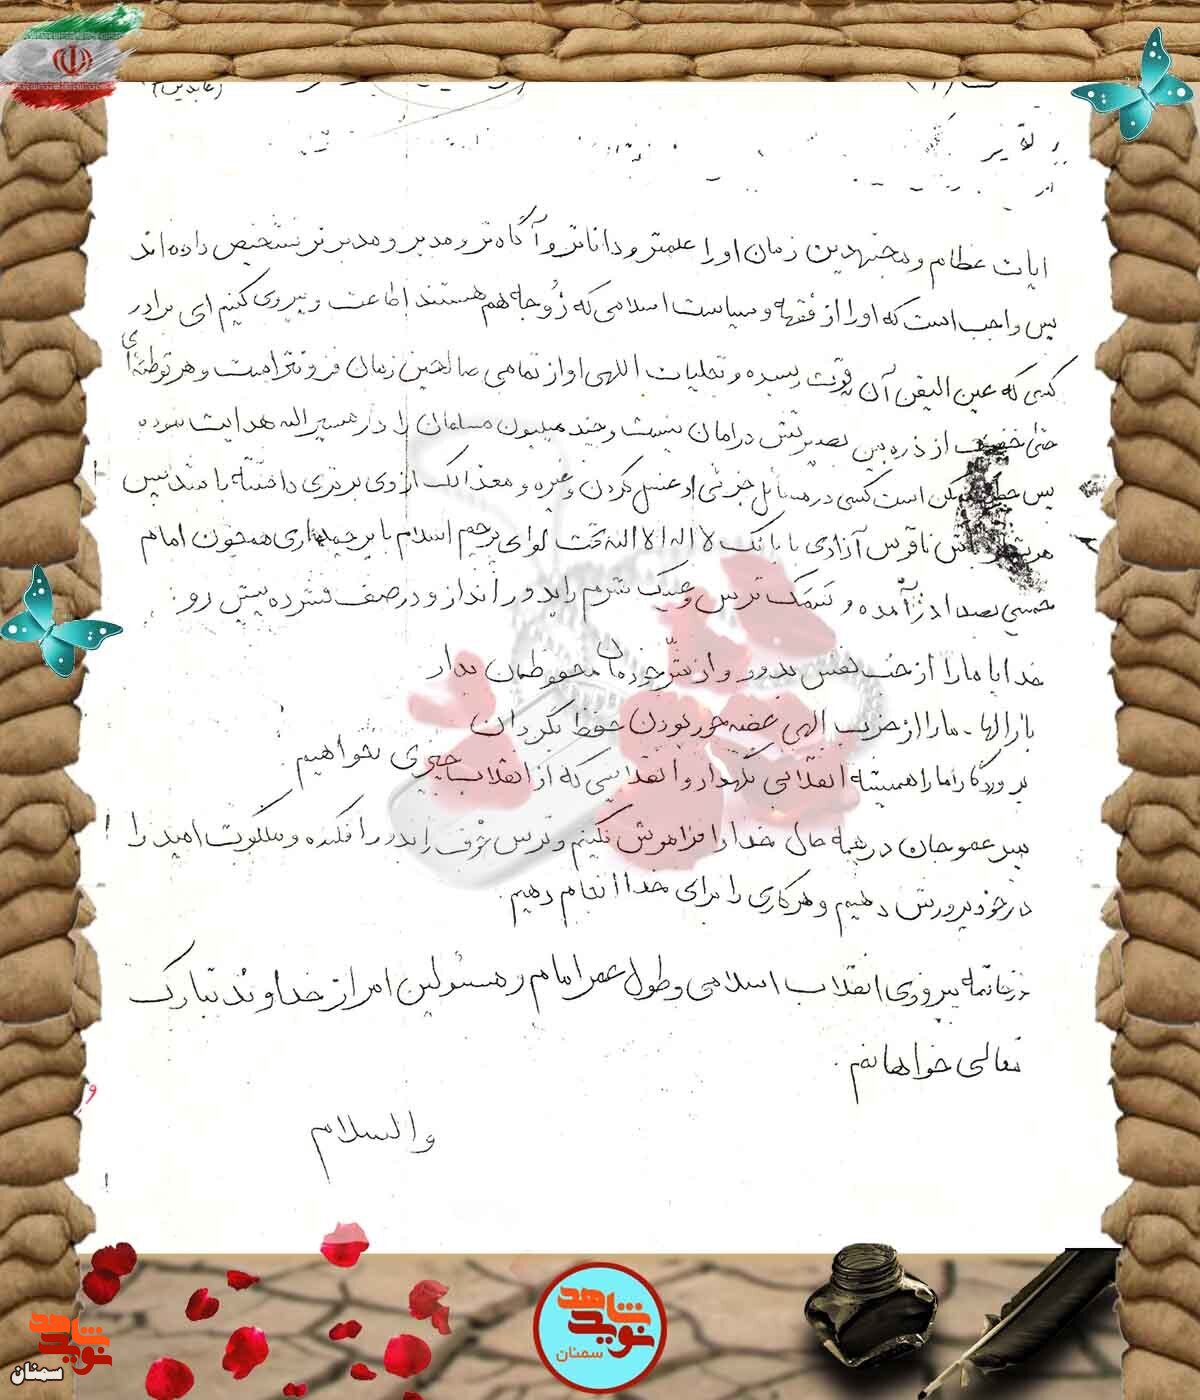 (عابدین)
ایات عظام و مجتهدین زمان او را علمتر و داناتر و آگاه تر و مدیر و مدبر تر تشخیص داده اند
پس واجب است که او را از فقهه و سیاست اسلامی که زوجه هم هستند اطاعت و پیروی کنیم ای برادر
کسی که عین الیقن آن قوت رسیده و تجلیات اللهی او از تمامی صالحین زمان فزونتر است و هر توطئه ای
حتی خفیف از ذره بین بصیرتش در امان نیست و چند میلیون مسلمان را در مسیر الله هدایت نموده
پس ممکن است کسی در مسائل جزئی از غسل کردن و غیره و معذالک از وی برتری داشته باشد پس
ناقوس آزادی با بانگ لا اله الا الله تحت لوای پرچم اسلام با پرچمداری همچون امام
خمینی بصدا در آمده و ترس و شرم را بدور انداز و در صف فشرده پیش رو.
خدایا ما را از حب نفس بدور و از شر خودمان محفوظمان بدار
بارالها - ما را از حزب الهی غصه خور بودن حفظ بگردان
پروردگارا ما را همیشه انقلابی نگهدار و انقلابیی که از انقلاب چیزی نخواهیم.
پسر عمو جان در همه حال خدا را فراموش نکنیم و ترس ژرف را بدور افکنده و ملکوت امید را
در خود پرورش دهیم و هر کاری را برای خدا انجام دهیم.
در خاتمه پیروزی انقلاب اسلامی و طول عمر امام و مسئولین امر از خداوند تبارک
تعالی خواهانم.
والسلام
نوید شاهد
سمنان
نوید شاهد
سمنان